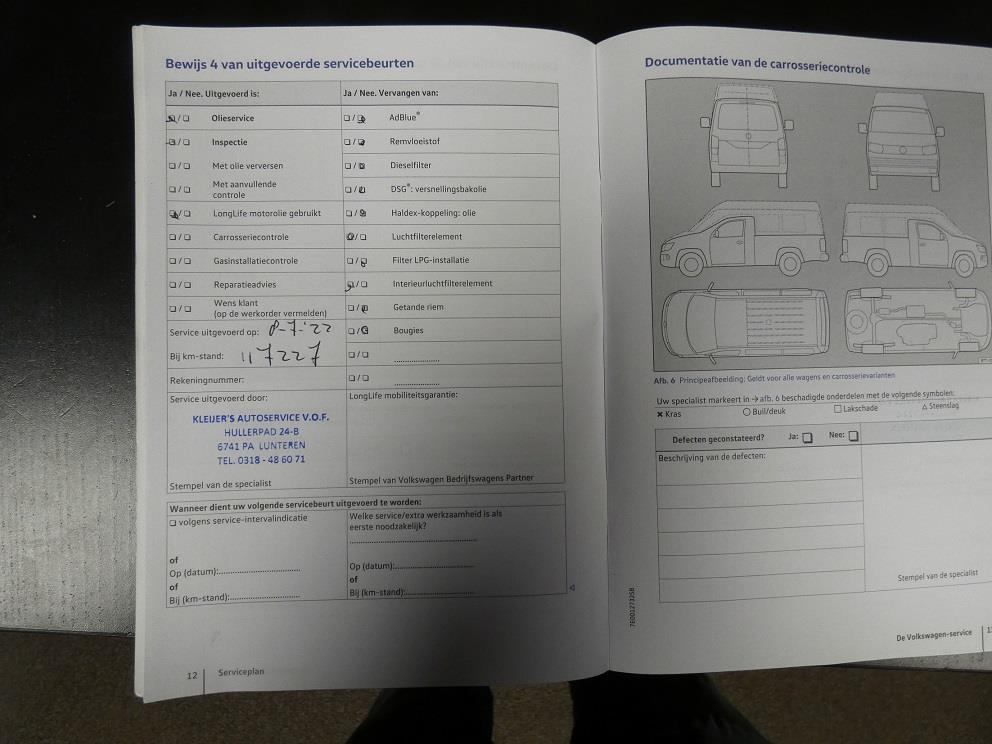 Bewijs 4 van uitgevoerde servicebeurten
Ja / Nee. Uitgevoerd is:
Ja / Nee. Vervangen van:
☑/☐ Olieservice
☐/☑ AdBlue®
☑/☐ Inspectie
☐/☑ Remvloeistof
☐/☐ Met olie verversen
☐/☑ Dieselfilter
☐/☐ Met aanvullende
controle
☐/☑ DSG®: versnellingsbakolie
☑/☐ LongLife motorolie gebruikt
☐/☑ Haldex-koppeling: olie
☐/☐ Carrosseriecontrole
☑/☐ Luchtfilterelement
☐/☐ Gasinstallatiecontrole
☐/☑ Filter LPG-installatie
☐/☐ Reparatieadvies
☑/☐ Interieurluchtfilterelement
☐/☐ Wens klant
(op de werkorder vermelden)
☐/☑ Getande riem
Service uitgevoerd op: 8-7-'22
☐/☑ Bougies
Bij km-stand: 117227
☐/☐ ....................
Rekeningnummer:
☐/☐ ....................
Service uitgevoerd door:
KLEIJER'S AUTOSERVICE V.O.F.
HULLERPAD 24-B
6741 PA LUNTEREN
TEL. 0318 - 48 60 71
Stempel van de specialist
LongLife mobiliteitsgarantie:
Stempel van Volkswagen Bedrijfswagens Partner
Wanneer dient uw volgende servicebeurt uitgevoerd te worden:
☐ volgens service-intervalindicatie
of
Op (datum):....................
of
Bij (km-stand):....................
Welke service/extra werkzaamheid is als
eerste noodzakelijk?
....................
Op (datum):....................
of
Bij (km-stand):....................
12 Serviceplan
Documentatie van de carrosseriecontrole
Afb. 6 Principeafbeelding: Geldt voor alle wagens en carrosserievarianten
Uw specialist markeert in → afb. 6 beschadigde onderdelen met de volgende symbolen:
✖ Kras ○ Buil/deuk ☐ Lakschade △ Steenslag
Defecten geconstateerd? Ja: ☐ Nee: ☐
Beschrijving van de defecten:
Stempel van de specialist
7E0012732SB
De Volkswagen-service